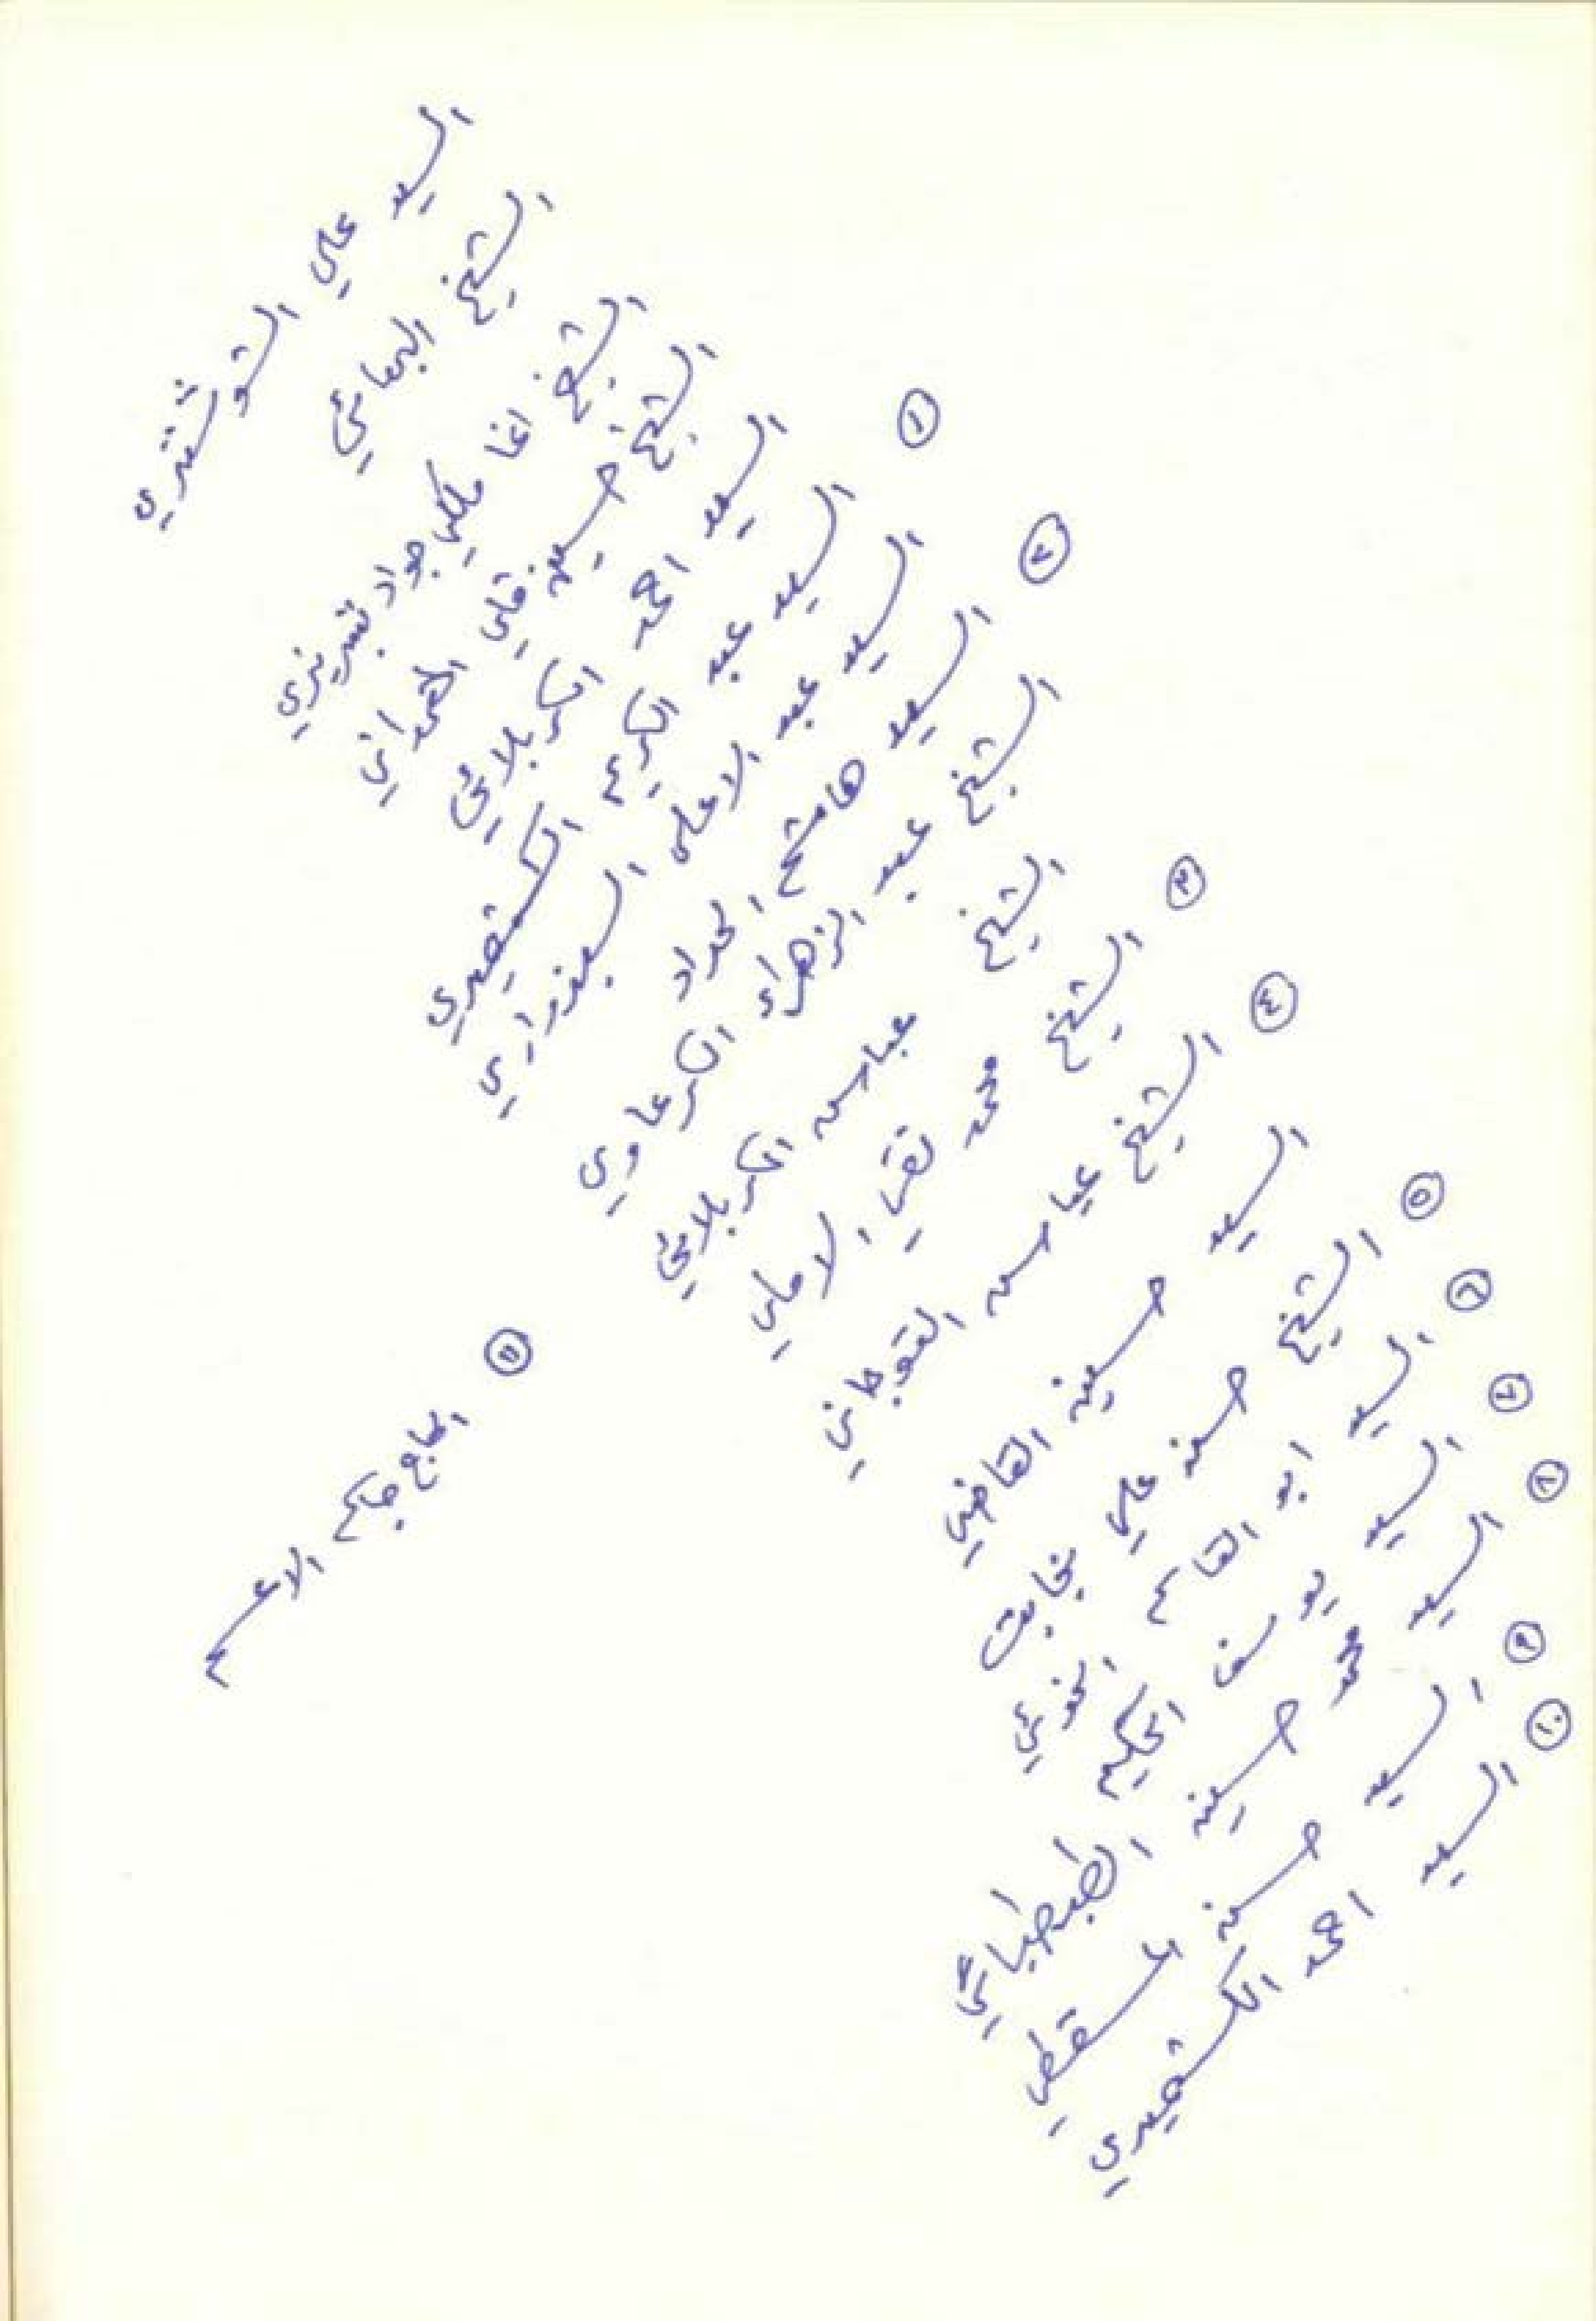 السيد علي التوشتري
الشيخ البهائي
الشيخ اغا ملكي جواد تبريزي
الشيخ حسين قلي الهمداني
السيد احمد الكربلائي
① السيد عبد الكريم الكشميري
السيد عبد الاعلى السبزواري
② السيد هاشم الحداد
الشيخ عبد الزهراء الكرعاوي
الشيخ عباس الكربلائي
③ الشيخ محمد تقي الاملي
④ الشيخ عباس القوجاني
السيد حسين القاضي
⑤ الشيخ حسن علي نجابت
⑥ السيد ابو القاسم الخوئي
السيد يوسف الحكيم
السيد محمد حسين الطباطبائي
⑨ السيد حسن مسقطي
⑩ السيد احمد الكشميري
⑪ الحاج جاسم الاعسم